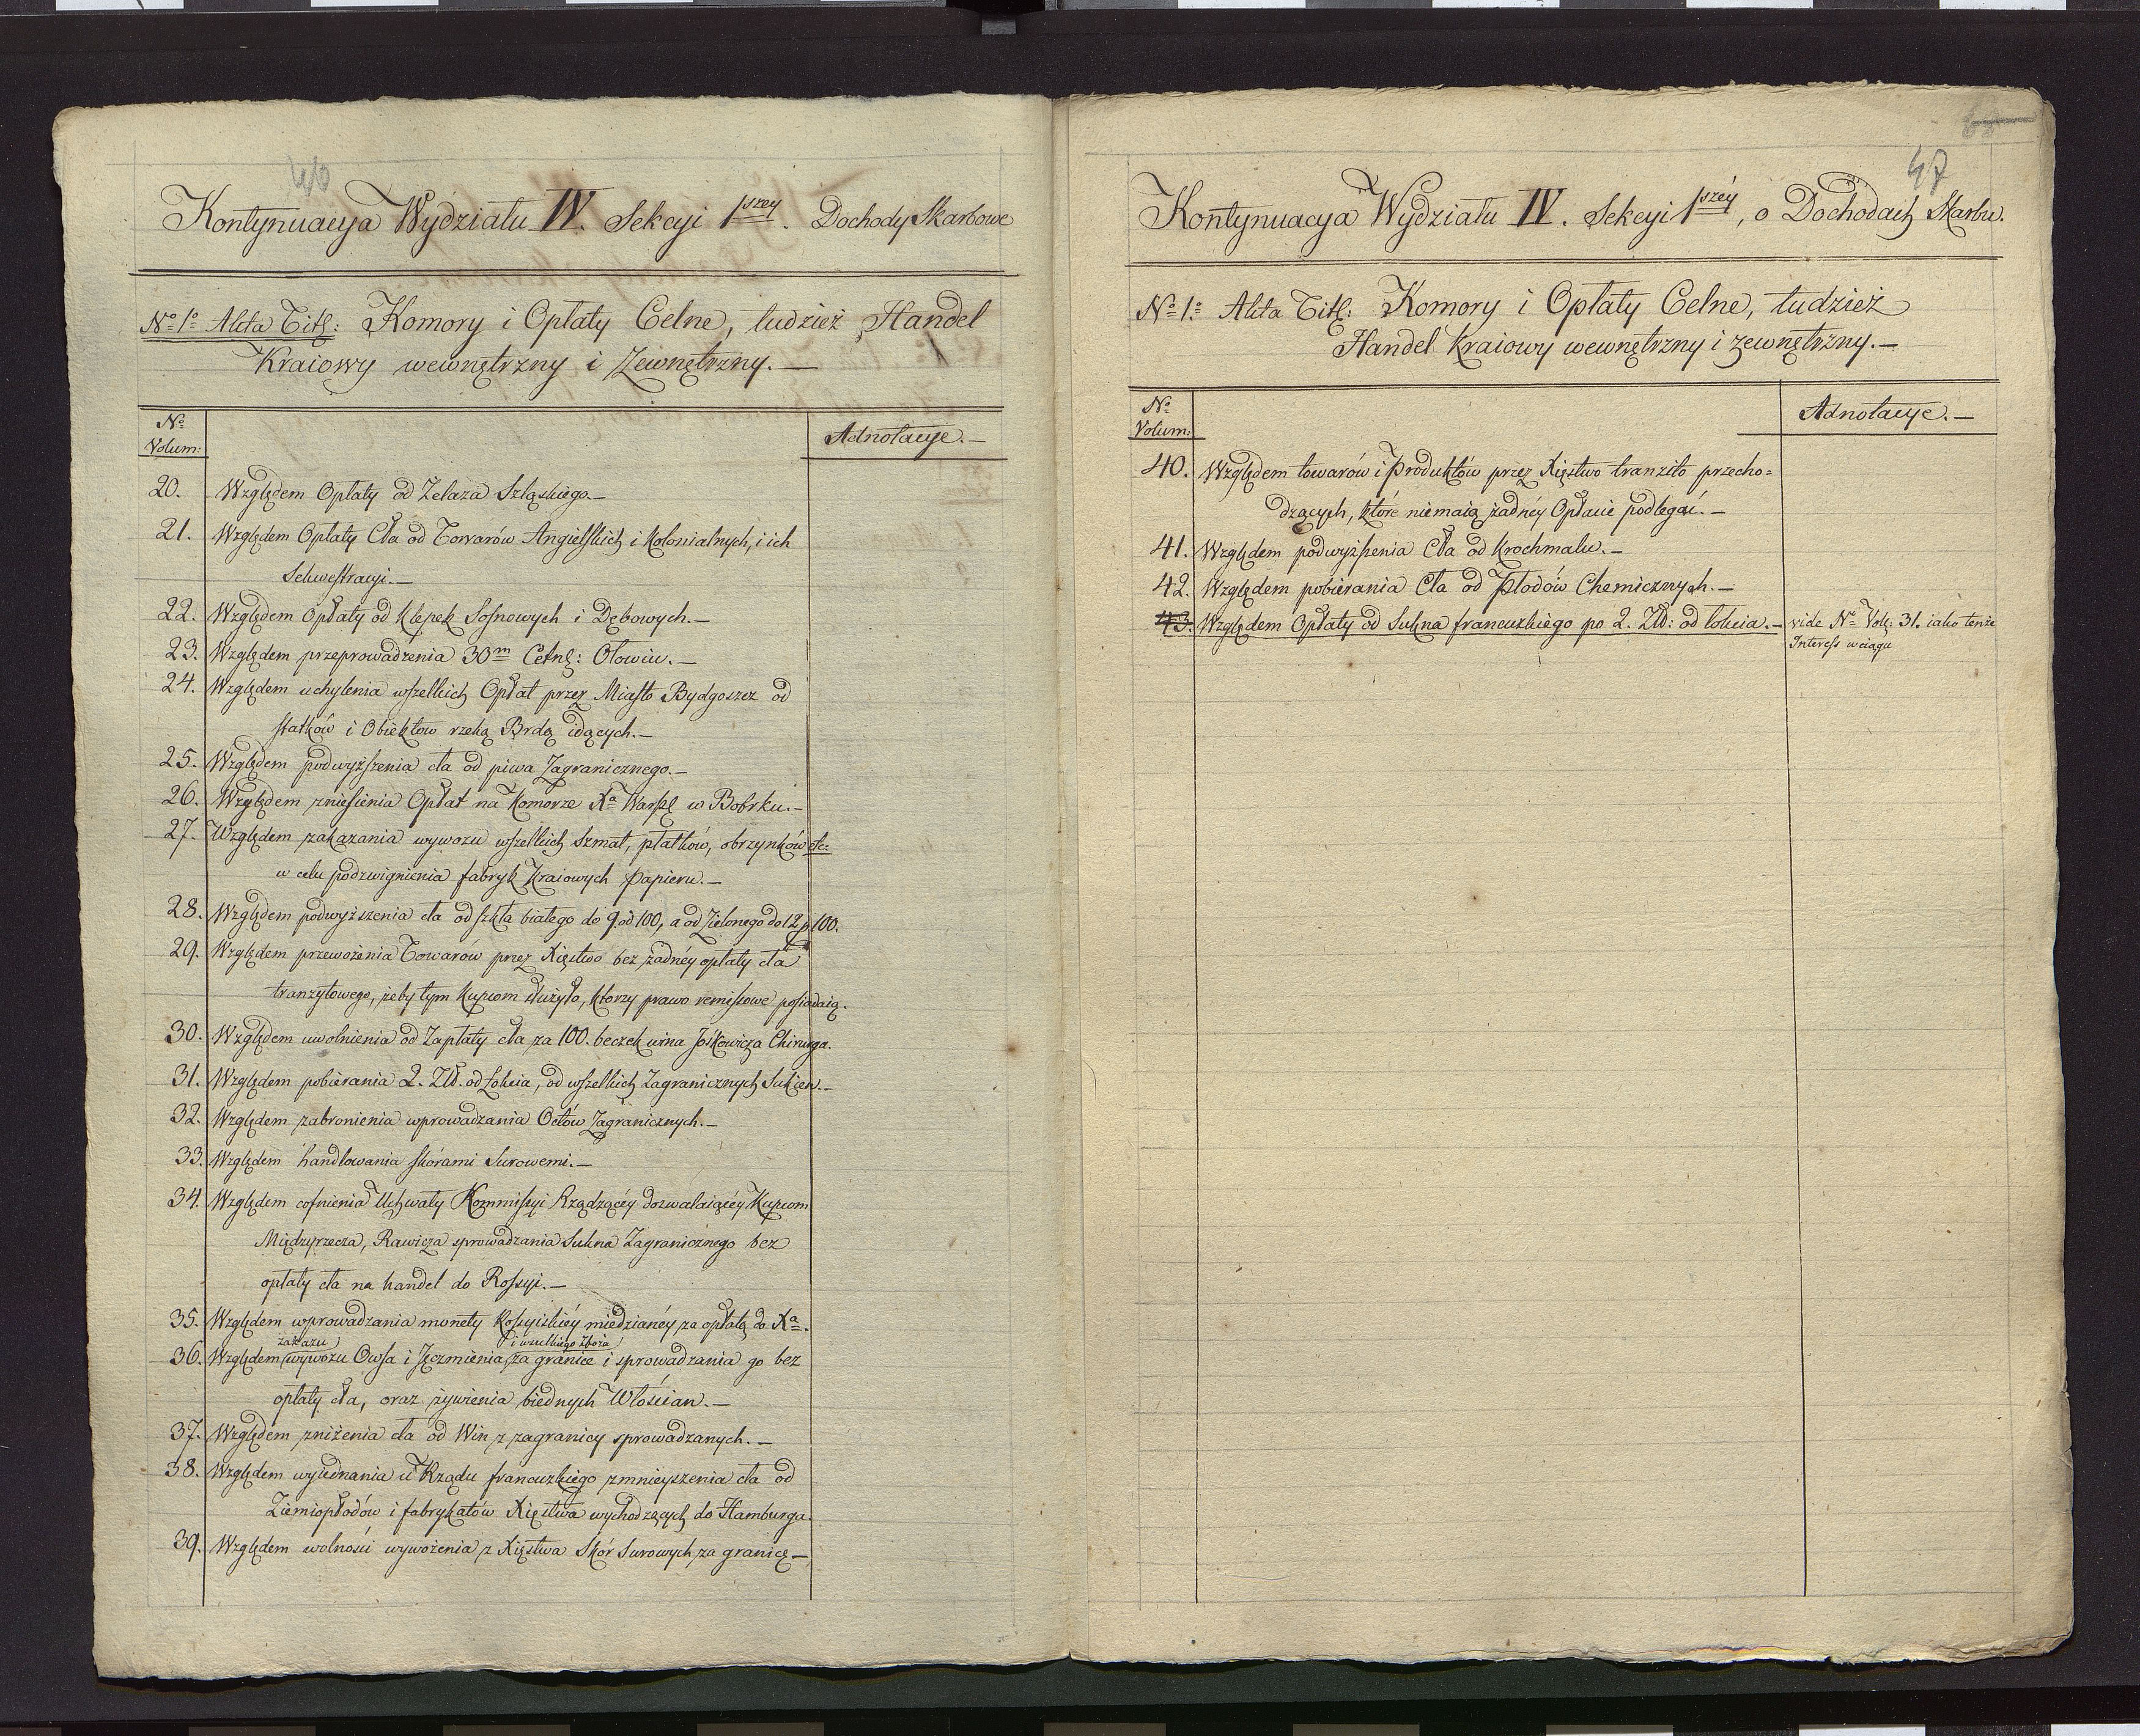 46
Kontynuacya Wydziału IV. Sekcyi 1szey. Dochody Skarbowe
No 1o Akta Titl: Komory i Opłaty Celne, tudzież Handel
Kraiowy wewnętrzny i Zewnętrzny.—
No
Volum:
Adnotacye.—
20. Względem Opłaty od Żelaza Szląskiego.—
21. Względem Opłaty Cła od Towarów Angielskich i Kolonialnych, i ich
Sekwestracyi.—
22. Względem Opłaty od Klepek Sosnowych i Dębowych.—
23. Względem przeprowadzenia 30m Cetn: Ołowiu.—
24. Względem uchylenia wszelkich Opłat przez Miasto Bydgoszcz od
statków i Obiektow rzeką Brdą idących.—
25. Względem podwyższenia cła od piwa Zagranicznego.—
26. Względem zniesienia Opłat na Komorze Xa Warsz w Bobrku.—
27. Względem zakazania wywozu wszelkich szmat, płatków, obrzynków etc:
w celu podzwignienia fabryk Kraiowych papieru.—
28. Względem podwyższenia cła od szkła białego do 9. od 100, a od Zielonego do 12 p 100.
29. Względem przewożenia Towarów przez Xięstwo bez żadnéy opłaty cła
tranzytowego, żeby tym kupcom służyło, ktorzy prawo remisowe posiadaią.
30. Względem uwolnienia od Zapłaty cła za 100. beczek wina Jóśkowicza Chirurga.
31. Względem pobierania 2. Złł. od Łokcia, od wszelkich Zagranicznych Sukien.—
32. Względem zabronienia wprowadzania Octów Zagranicznych.—
33. Względem handlowania skórami Surowemi.—
34. Względem cofnienia Uchwały Kommissyi Rządzącéy dozwalaiącéy Kupcom
Międzyrzecza, Rawicza sprowadzania Sukna Zagranicznego bez
opłaty cła na handel do Rossyi.—
35. Względem wprowadzania monety Rossyiskiéy miedzianéy za opłatą do Xa.
zakazu i wszelkiego zboża
36. Względem wywozu Owsa i Jęczmienia za granice i sprowadzania go bez
opłaty cła, oraz żywienia biednych Włościan.—
37. Względem zniżenia cła od Win z zagranicy sprowadzanych.—
38. Względem wyiednania u Rządu francuzkiego zmnieyszenia cła od
Ziemiopłodów i fabrykatów Xięstwa wychodzących do Hamburga.
39. Względem wolności wywożenia z Xięstwa Skór Surowych za granicę—
47
Kontynuacya Wydziału IV. Sekcyi 1széy, o Dochodach Skarbu.
No 1o Akta Titl: Komory i Opłaty Celne, tudzież
Handel Kraiowy wewnętrzny i zewnętrzny.—
No
Volum:
Adnotacye.—
40. Względem towarów i Produktów przez Xięstwo tranzito przecho=
dzących, które niemaią żadnéy Opłacie podlegać.—
41. Względem podwyższenia Cła od Krochmalu.—
42. Względem pobierania Cła od Płodów Chemicznych.—
43. Względem Opłaty od Sukna francuzkiego po 2. Złł: od łokcia.— vide No Vol: 31. iako tenże
Interess w ciągu